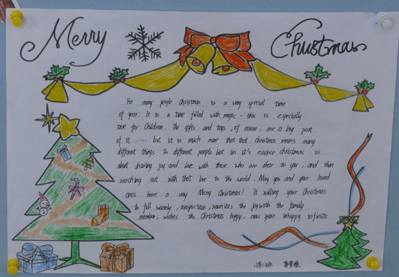 Merry Christmas
For many people Christmas is a very special time
of year. It is a time filled with magic - this is especially
true for children. The gifts and toys, of course, are a big part
of it ---- but it is much more than that Christmas means many
different things to different people but in it's essence christmas is
about sharing joy and love with those who are dear to you, and then
reaching out with that love to the world. May you and your loved
ones have a very Merry Christmas! It willing your Christmas
to fill warmly, the joy with the family
member, wishes the Christmas happy, new year